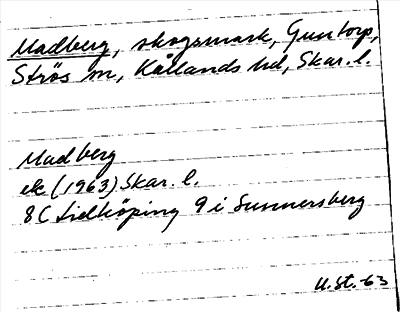 Madberg, skogsmark, Guntorp,
Strös sn, Kållands hd, Skar. l.
Madberg
ek (1963) Skar. l.
8C Lidköping 9 i Sunnersberg
U. St. -63